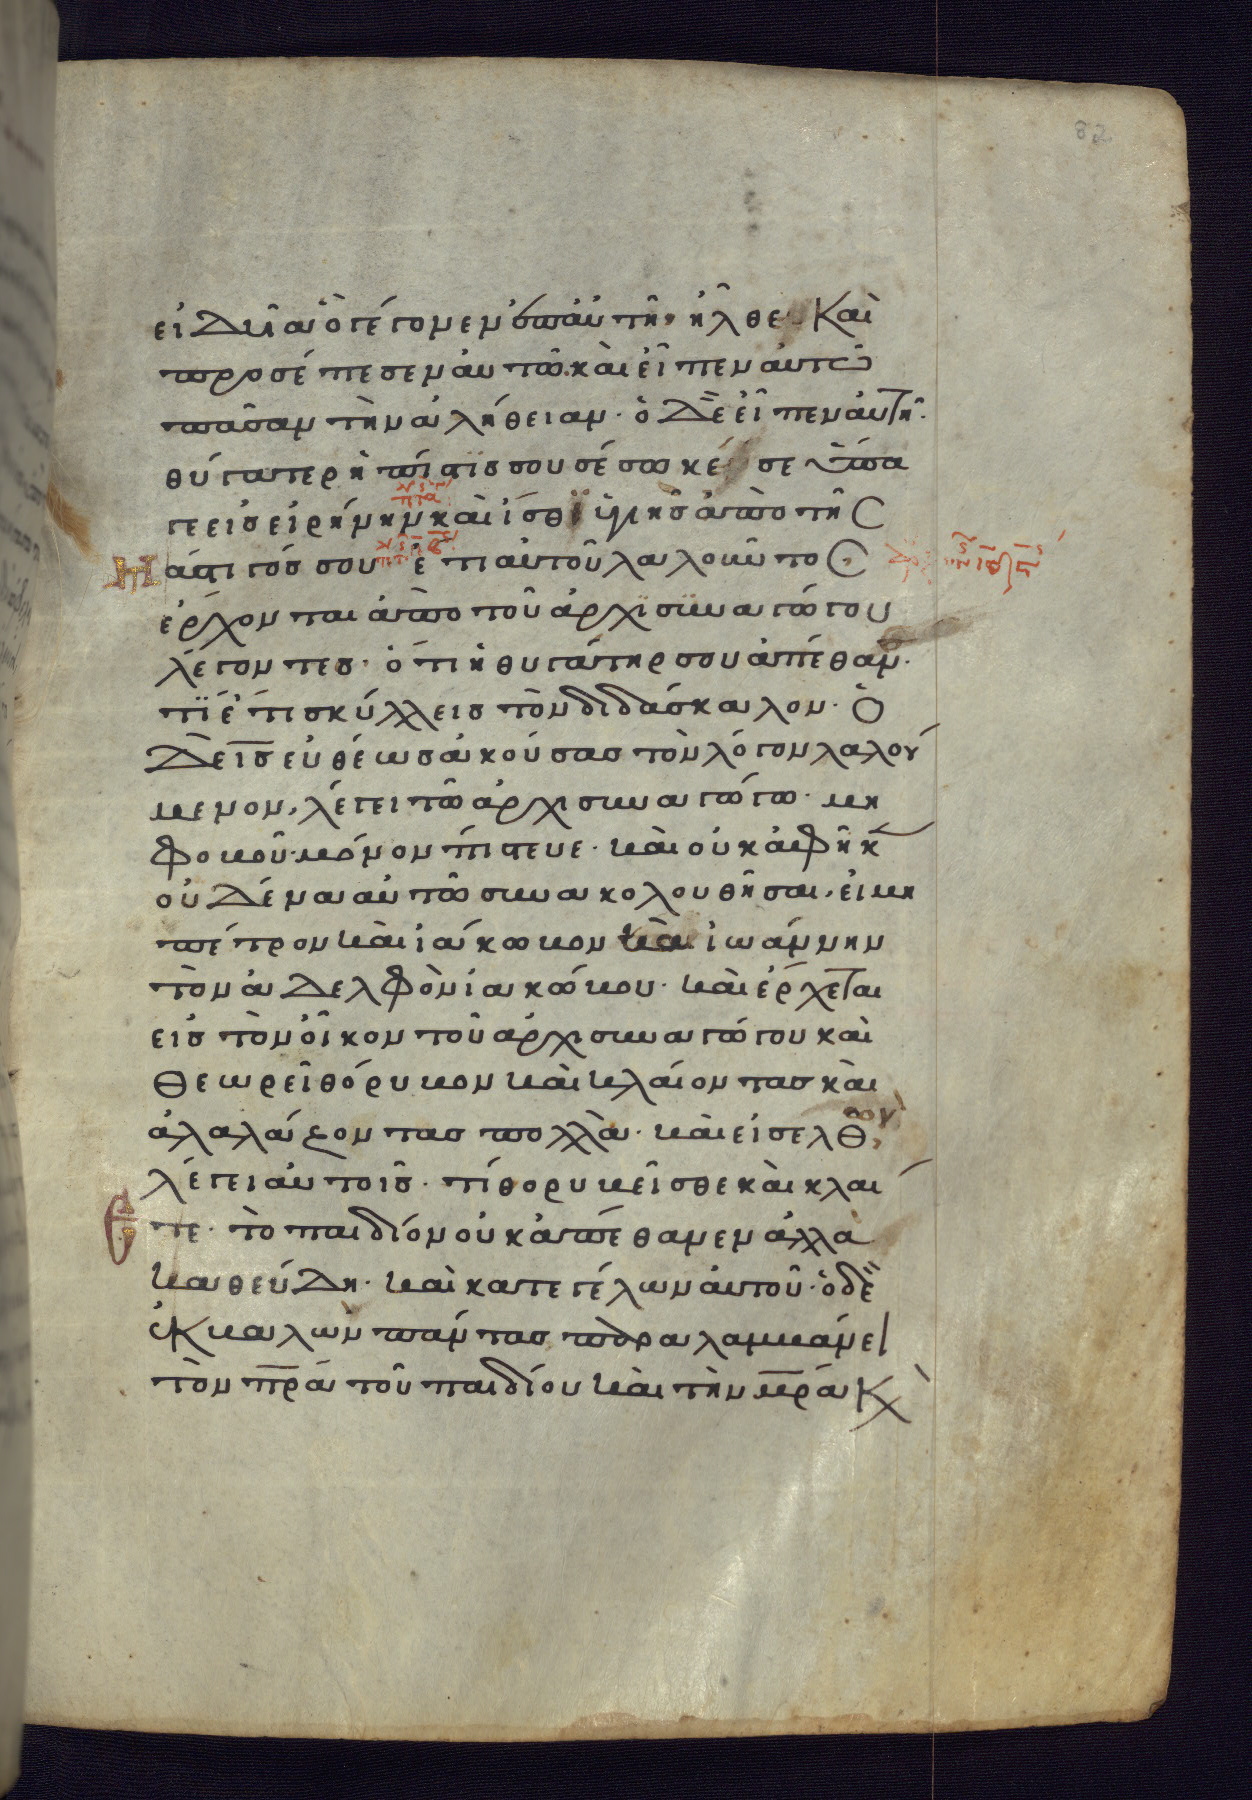 82
εἰδυῖα ὃ γέγονεν ἐπ αὐτῆ· ἦλθε καὶ
προσέπεσεν αὐτῶ· καὶ εἶπεν αὐτῶ
πᾶσαν τὴν ἀλήθειαν· ὁ δὲ εἶπεν αὐτῆ·
θύγατερ ἡ πίστις σου σέσωκέ σε ὕπα
γε εἰς εἰρήνην καὶ ἴσθι ὑγιὴς ἀπὸ τῆς
μάστιγός σου ἔτι αὐτοῦ λαλοῦντος
ἔρχονται ἀπὸ τοῦ ἀρχισυναγώγου
λέγοντες· ὅτι ἡ θυγάτηρ σου ἀπέθαν·
τί ἔτι σκύλλεις τὸν διδάσκαλον· ὁ
δὲ ις εὐθέως ἀκούσας τὸν λόγον λαλού
μενον, λέγει τῶ ἀρχισυναγώγω· μὴ
φοβοῦ· μόνον πίστευε· καὶ οὐκ ἀφῆκ
οὐδένα αὐτῶ συνακολουθῆσαι, εἰ μὴ
πέτρον καὶ ἰάκωβον καὶ ἰωάννην
τὸν ἀδελφὸν ἰακώβου· καὶ ἔρχεται
εἰς τὸν οἶκον τοῦ ἀρχισυναγώγου καὶ
θεωρεῖ θόρυβον καὶ κλαίοντας καὶ
ἀλαλάζοντας πολλὰ· καὶ εἰσελθὼν,
λέγει αὐτοῖς· τί θορυβεῖσθε καὶ κλαί
ετε· τὸ παιδίον οὐκ ἀπέθανεν ἀλλὰ
καθεύδη· καὶ κατεγέλων αὐτοῦ· ὁ δὲ
ἐκβαλὼν πάντας παραλαμβάνει
τὸν πρα τοῦ παιδίου καὶ τὴν μρα κ